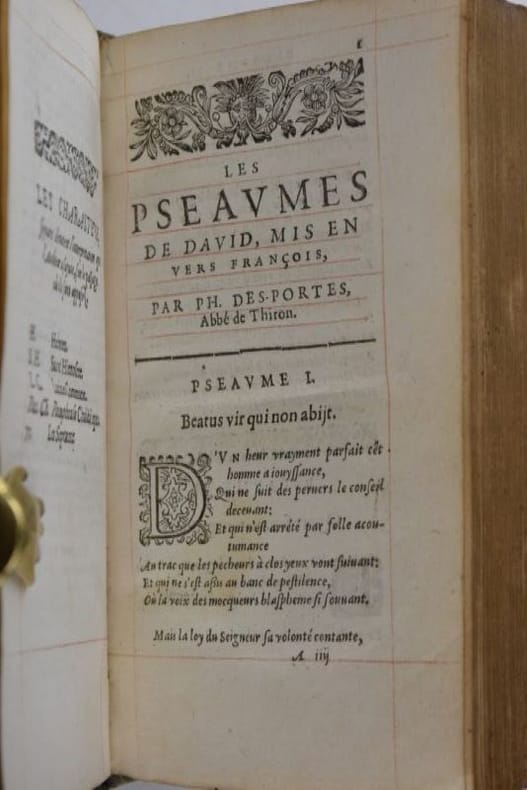 LES CHARACTERES,
H. Hebreu.
S. H. Saint Hierosme.
La Septante
LES
PSEAVMES
DE DAVID, MIS EN
VERS FRANÇOIS,
PAR PH. DES-PORTES,
Abbé de Thiron.
PSEAVME I.
Beatus vir qui non abijt.
D'VN heur vrayment parfait cét
homme a iouyſſance,
Qui ne ſuit des peruers le conſeil
deceuant:
Et qui n'eſt arrété par folle acou-
tumance
Au trac que les pecheurs à clos yeux vont ſuiuant:
Et qui ne s'eſt aſſis au banc de peſtilence,
Où la voix des mocqueurs blaſpheme ſi ſouuant.
Mais la loy du Seigneur ſa volonté contante,
A iiij